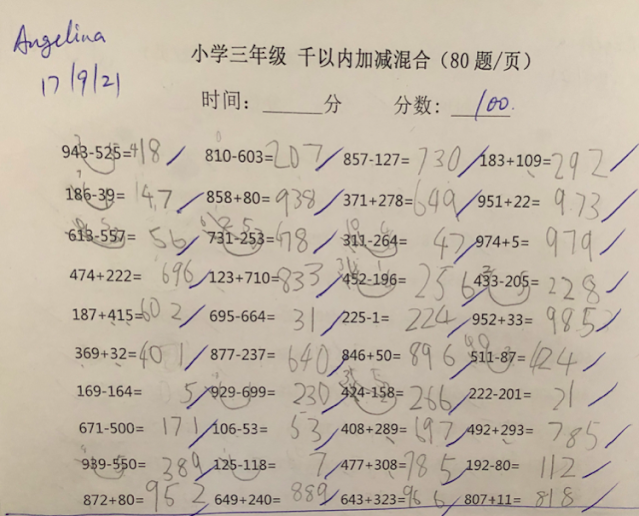 Angelina
17/9/21
小学三年级 千以内加减混合（80题/页）
时间：______分 分数：100.
943-525=418 810-603=207 857-127=730 183+109=292
186-39=147 858+80=938 371+278=649 951+22=973
613-557=56 731-253=478 311-264=47 974+5=979
474+222=696 123+710=833 452-196=256 433-205=228
187+415=602 695-664=31 225-1=224 952+33=985
369+32=401 877-237=640 846+50=896 511-87=424
169-164=5 929-699=230 424-158=266 222-201=21
671-500=171 106-53=53 408+289=697 492+293=785
939-550=389 125-118=7 477+308=785 192-80=112
872+80=952 649+240=889 643+323=966 807+11=818